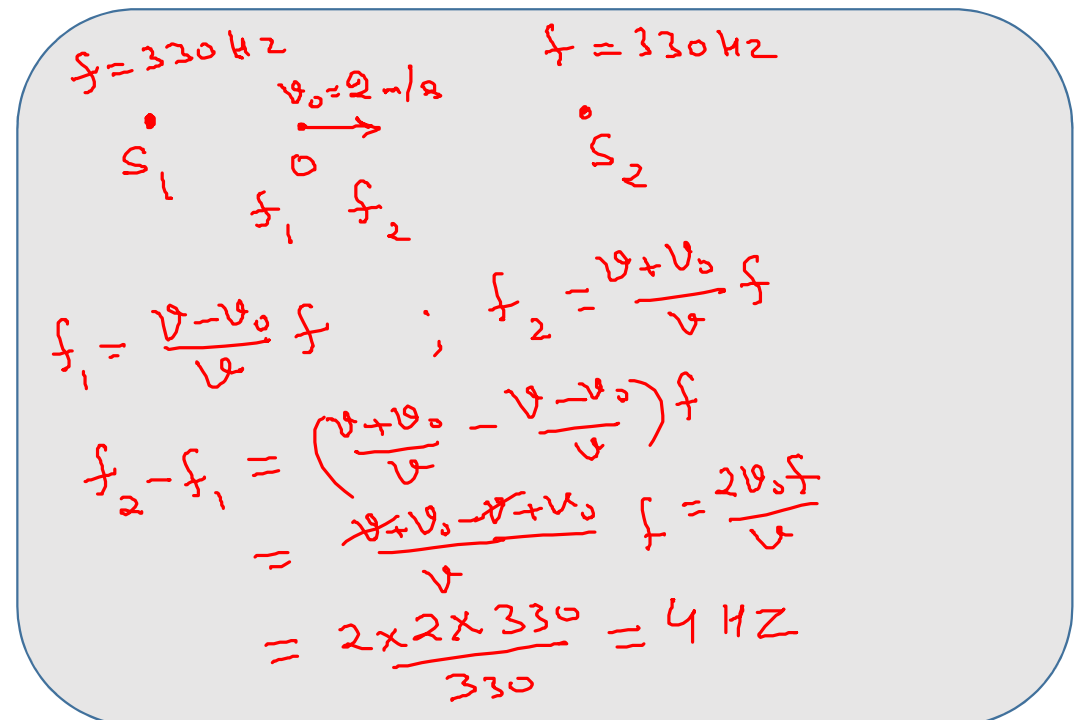 f = 330 Hz f = 330 Hz
v₀ = 2 m/s
S₁ O S₂
f₁ f₂
f₁ = (v − v₀)/v f ; f₂ = (v + v₀)/v f
f₂ − f₁ = ((v + v₀)/v − (v − v₀)/v) f
= (v + v₀ − v + v₀)/v f = 2v₀f/v
= (2 × 2 × 330)/330 = 4 HZ